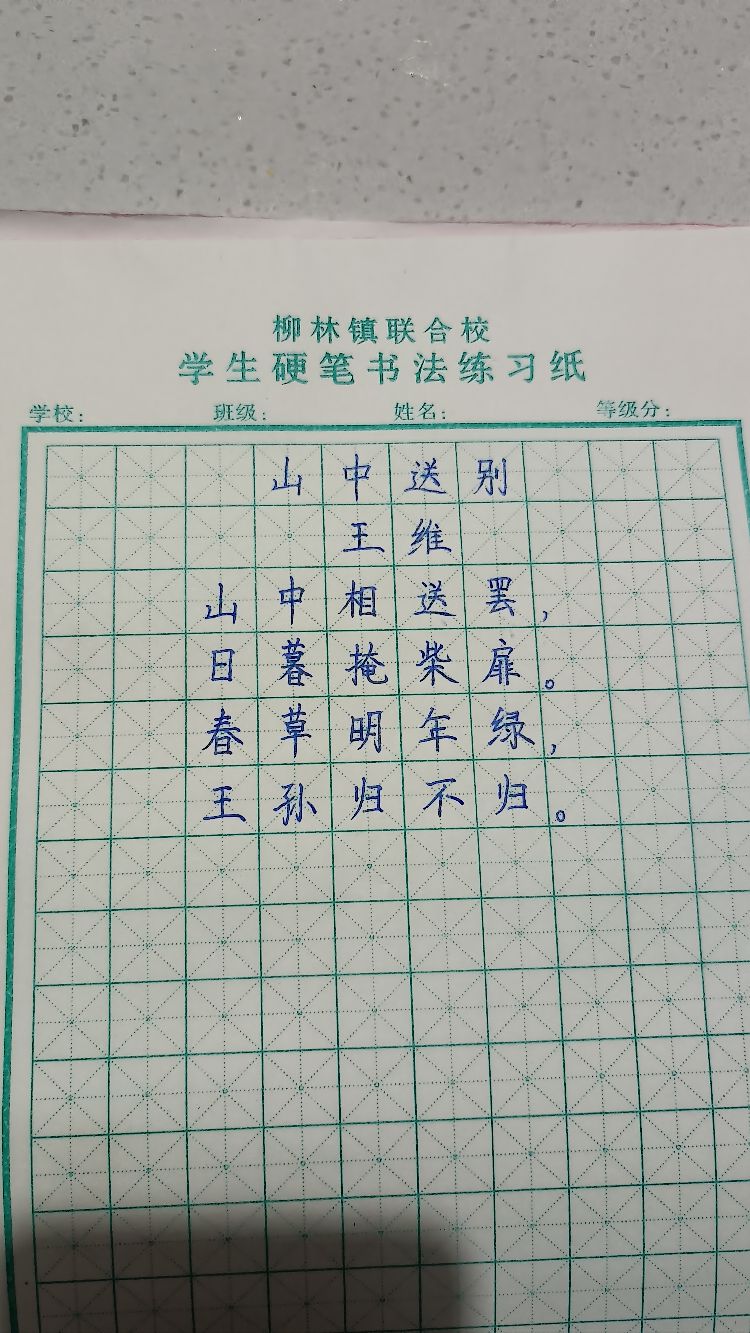 柳林镇联合校
学生硬笔书法练习纸
学校： 班级： 姓名： 等级分：
山中送别
王维
山中相送罢，
日暮掩柴扉。
春草明年绿，
王孙归不归。